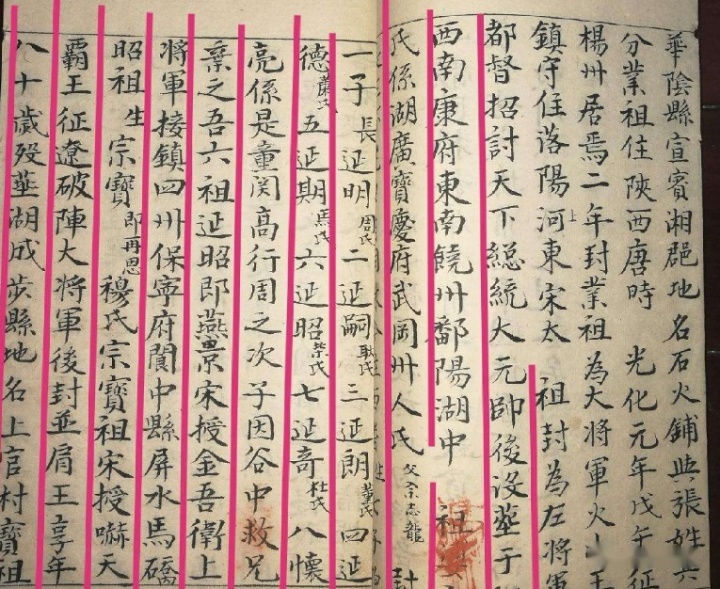 華陰縣宣賓湘郒地名石火鋪與張姓共
分業祖住陝西唐時 光化元年戊午征
楊州居焉二年封業祖為大將軍火山王
鎮守住落陽河東宋太 祖封為左將軍
都督招討天下縂統大元帥後沒塟于
西南康府東南饒州鄱陽湖中 祖
氏係湖廣寶慶府武岡州人氏父佘志龍 封
一子長延明周氏二延嗣耿氏三延朗董氏四延
德蕭氏五延期馬氏六延昭柴氏七延奇杜氏八懷
亮係是童関高行周之次子因谷中救兄
棄之吾六祖延昭即燕京宋授金吾衛上
將軍接鎮四州保寜府閬中縣屏水馬礄
昭祖生宗寶即再思穆氏宗寶祖宋授嚇天
霸王征遼破陣大將軍後封並肩王享年
八十歲歿塟湖成步縣地名上官村寶祖